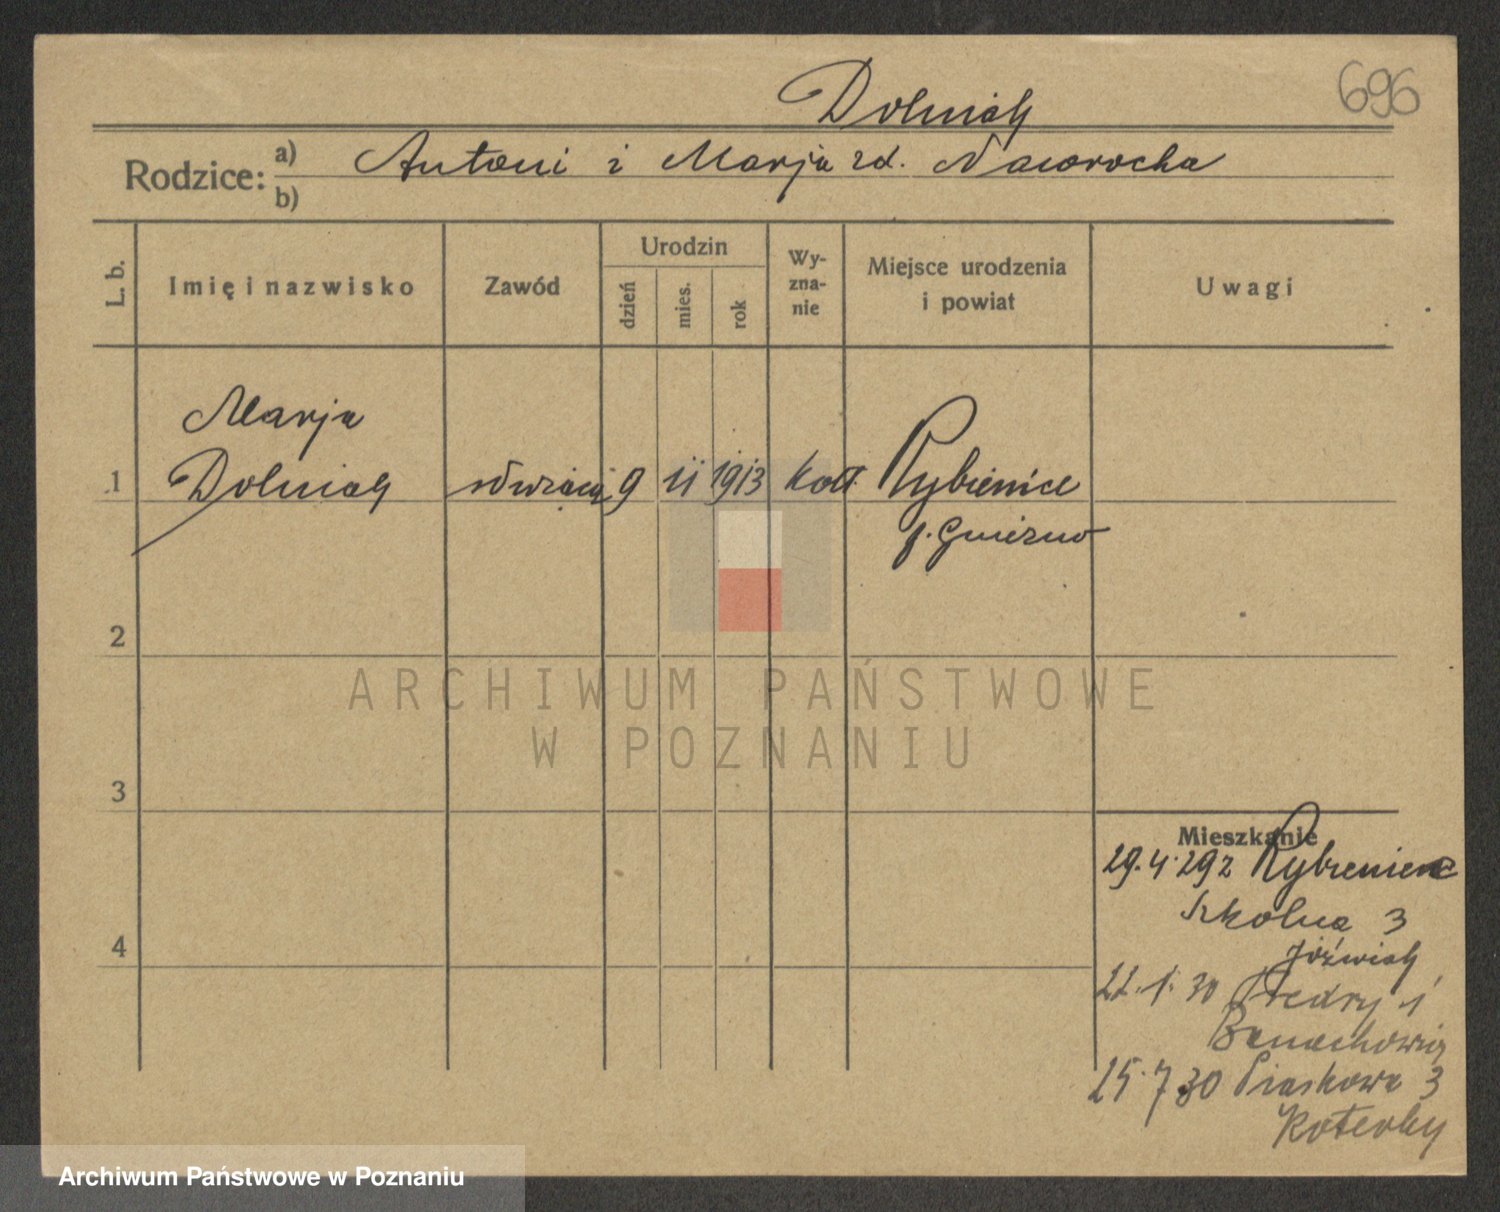 696
Dolniak
Rodzice:
a) Antoni i Marja zd. Naworocka
b)
L. b.
Imię i nazwisko
Zawód
Urodzin
dzień
mies.
rok
Wy-
zna-
nie
Miejsce urodzenia
i powiat
Uwagi
Marja
1 Dolniak 9 11 1913 kat Rybienice
p. Gniezno
2
ARCHIWUM PAŃSTWOWE
W POZNANIU
3
Mieszkanie
29.4.29 z Rybieniec
Szkolna 3
Jóźwiak
4
22.1.30 Fredry 1
25.7.30 Piaskowa 3
Archiwum Państwowe w Poznaniu